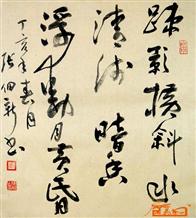 疏影横斜水
清浅暗香
浮动月黄昏
丁亥年春月
张佃新书